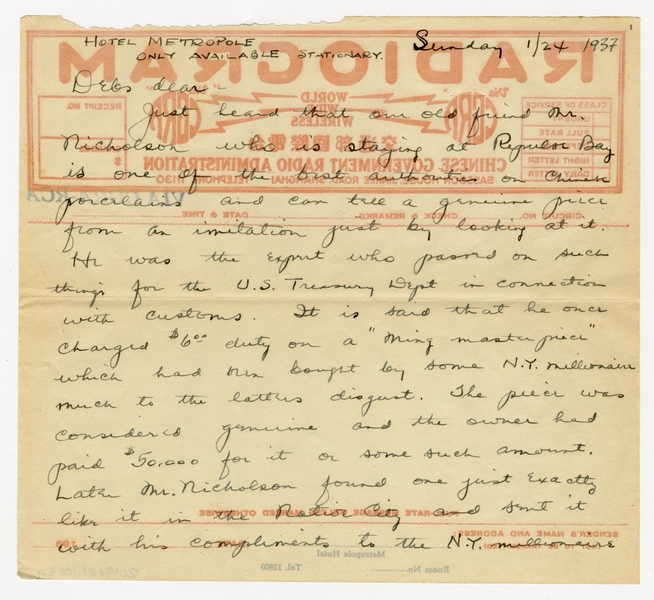 HOTEL METROPOLE
ONLY AVAILABLE STATIONARY.
Sunday 1/24 1937
Debs dear -
Just heard that our old friend Mr.
Nicholson who is staying at Repulse Bay
is one of the best authorities on Chinese
porcelains and can tell a genuine piece
from an imitation just by looking at it.
He was the expert who passed on such
things for the U.S. Treasury Dept in connection
with customs. It is said that he once
charged $6.00 duty on a "Ming masterpiece"
which had been bought by some N.Y. millionaire
much to the latters disgust. The piece was
considered genuine and the owner had
paid $50,000 for it or some such amount.
Later Mr. Nicholson found one just exactly
like it in the Native City and sent it
with his compliments to the N.Y. millionaire
RADIOGRAM
Via
RCA
WORLD
WIDE
WIRELESS
RECEIPT NO.
$
CLASS OF SERVICE
FULL RATE
NIGHT LETTER
CHINESE GOVERNMENT RADIO ADMINISTRATION
SASSOON HOUSE, JINKEE ROAD, SHANGHAI TELEPHONE: 11130
VIA RCA
CIRCUIT NO. CHECK & REMARKS DATE & TIME
SENDER'S NAME AND ADDRESS
193
Metropole Hotel
Room No. Tel. 12800